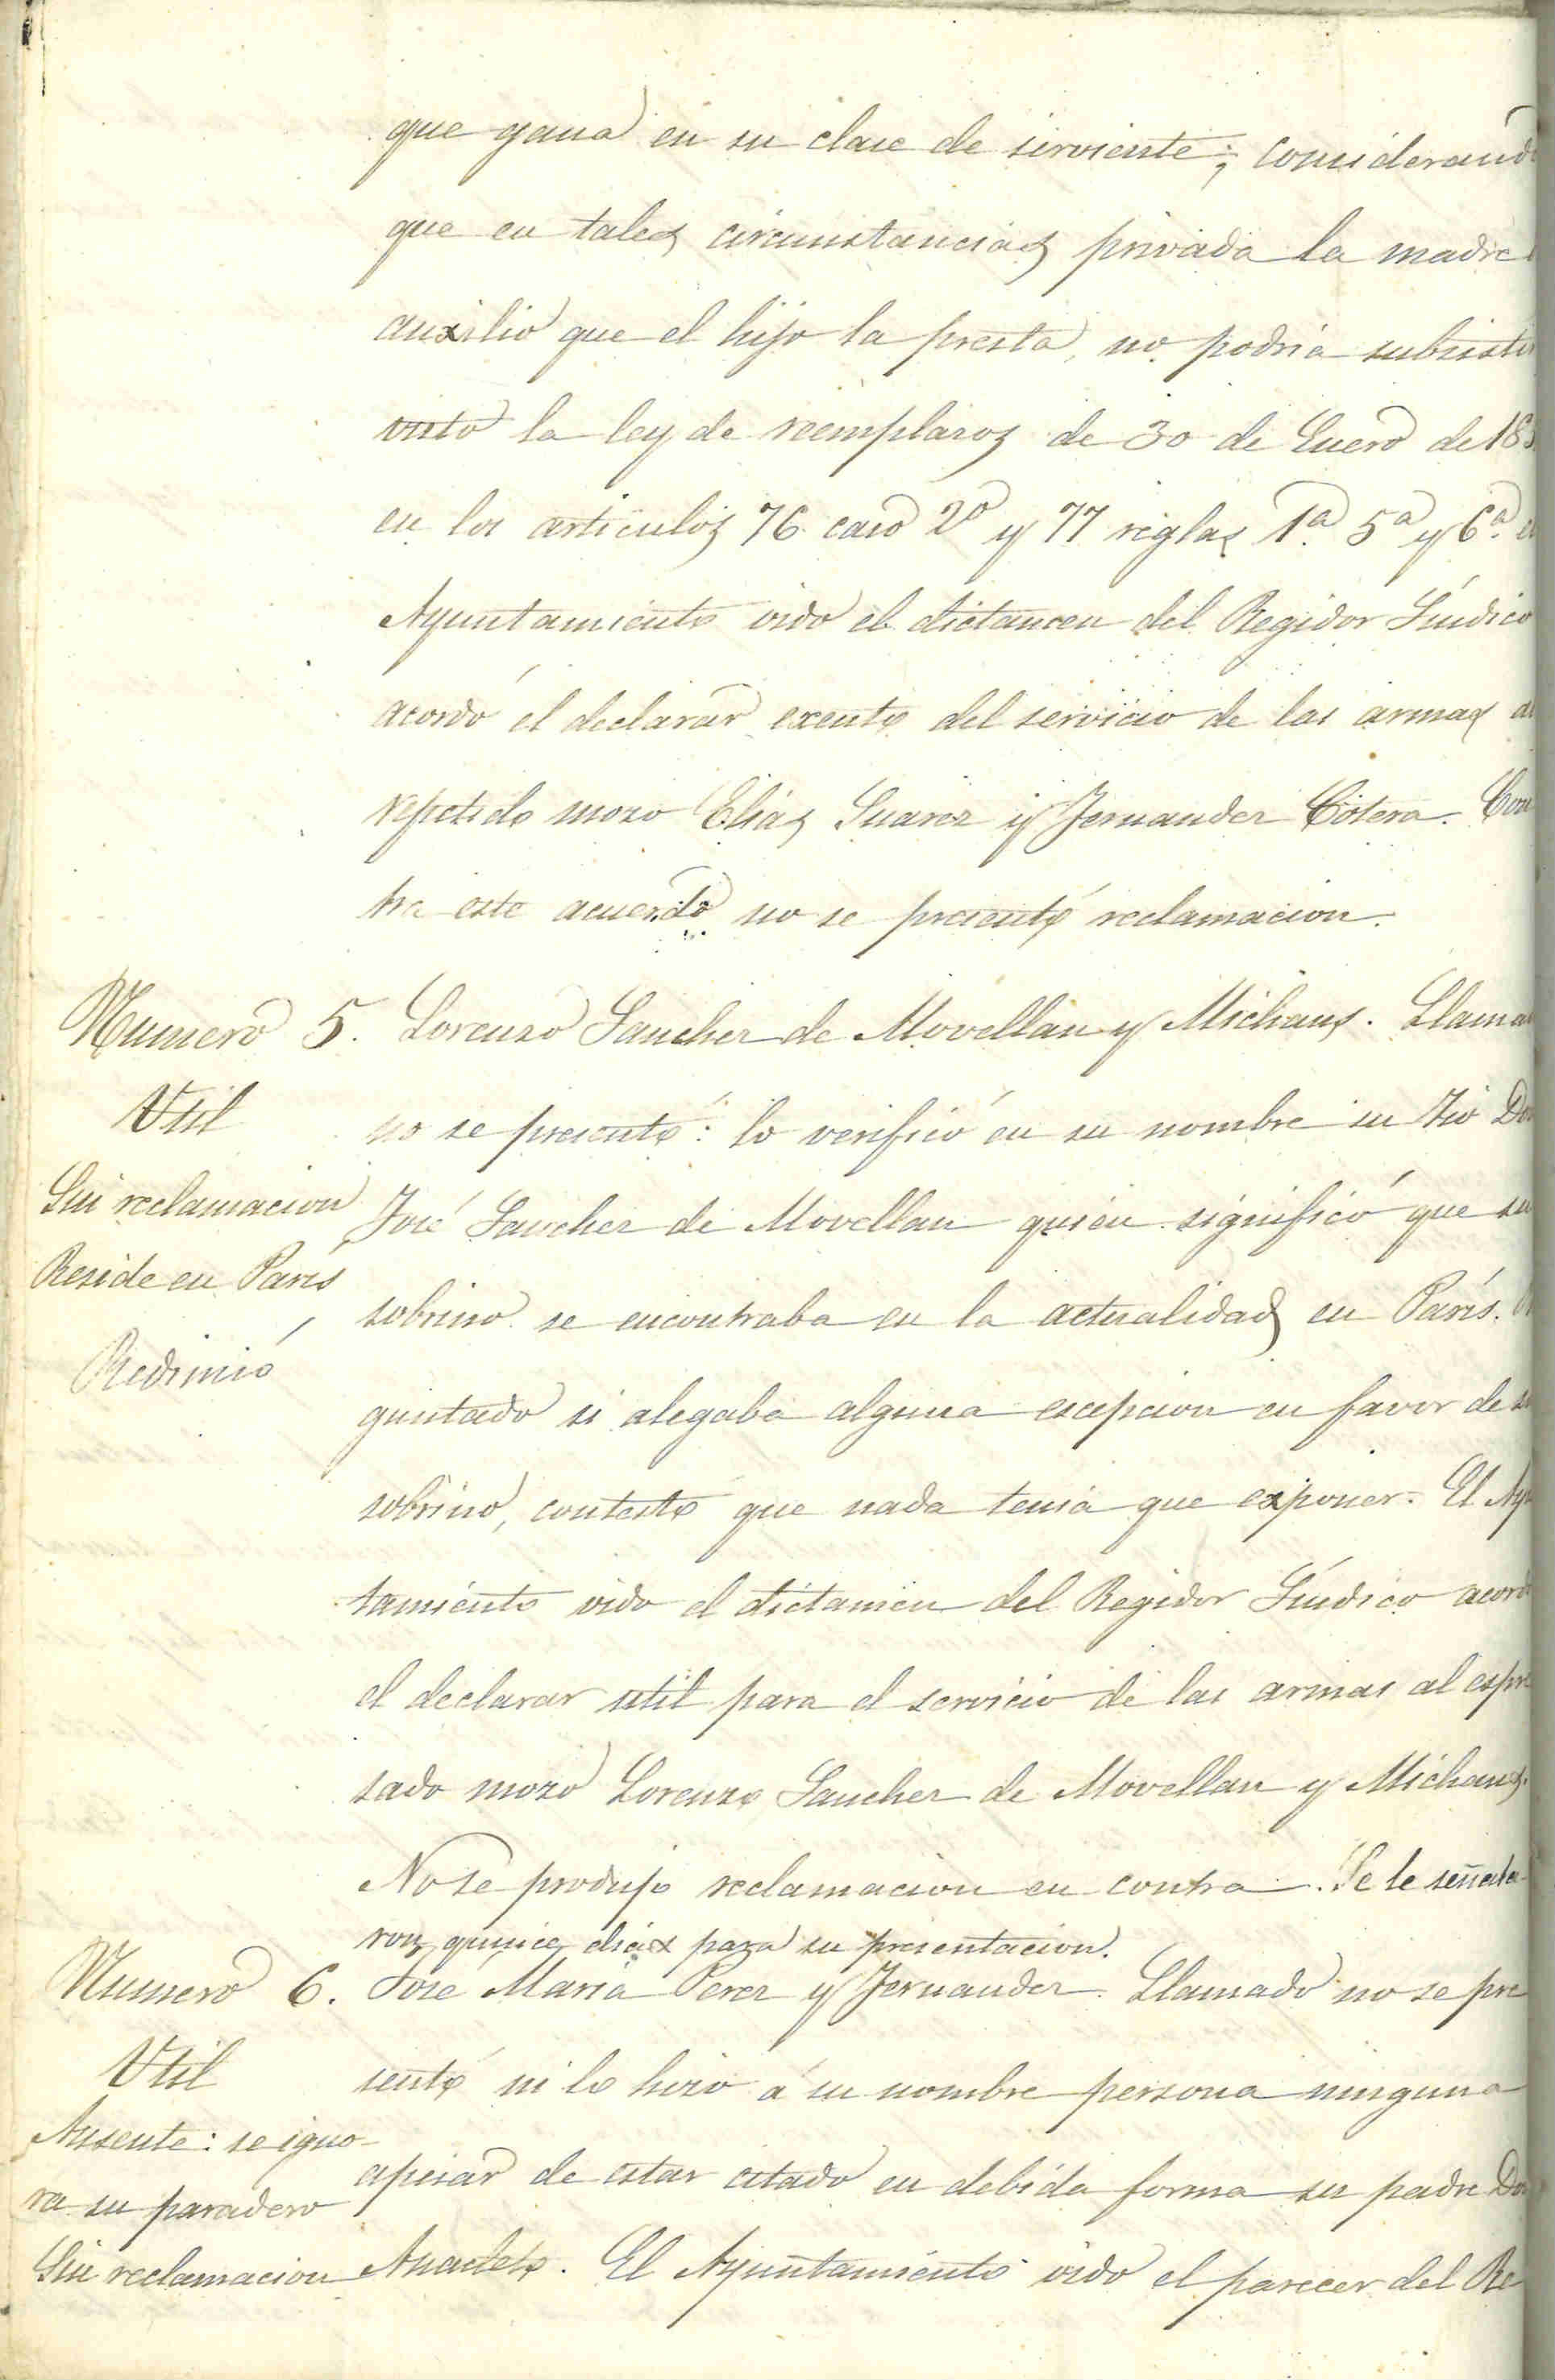 que gana en su clase de sirviente; considerando
que en tales circunstancias privada la madre
auxilio que el hijo la presta, no podria subsistir
visto la ley de reemplazos de 30 de Enero de 185
en los articulos 76 caso 2º y 77 reglas 1ª 5ª y 6ª el
Ayuntamiento oido el dictamen del Regidor Síndico
acordó el declarar exento del servicio de las armas al
repetido mozo Elias Suarez y Fernandez Cotera. Con
tra este acuerdo no se presentó reclamacion.
Numero 5. Lorenzo Sanchez de Movellan y Michaus. Llama
Util
no se presentó: lo verificó en su nombre su tio Don
Sin reclamacion
José Sanchez de Movellan quien significó que su
Reside en Paris
sobrino se encontraba en la actualidad en París.
Redimió
guntado si alegaba alguna escepcion en favor de su
sobrino, contestó que nada tenia que exponer. El Ayu
tamiento oido el dictamen del Regidor Síndico acordó
el declarar util para el servicio de las armas al espre
sado mozo Lorenzo Sanchez de Movellan y Michaus.
No se produjo reclamacion en contra. Se le señala
ron quince dias para su presentacion.
Numero 6. José Maria Perez y Fernandez. Llamado no se pre
Util
sentó ni lo hizo á su nombre persona ninguna
Ausente: se igno
apesar de estar citado en debida forma su padre Don
ra su paradero
Sin reclamacion
Anacleto. El Ayuntamiento oido el parecer del Re